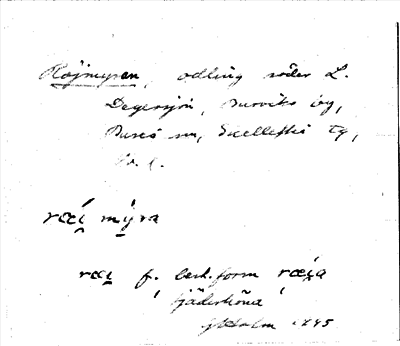 Röjmyran, odling söder L.
Degersjön, Burviks by,
Bureå sn, Skellefteå tg,
ræi̯ my̱ra
ræi̯ f. best. form ræi̯a
tjäderhöna
Holm 1945